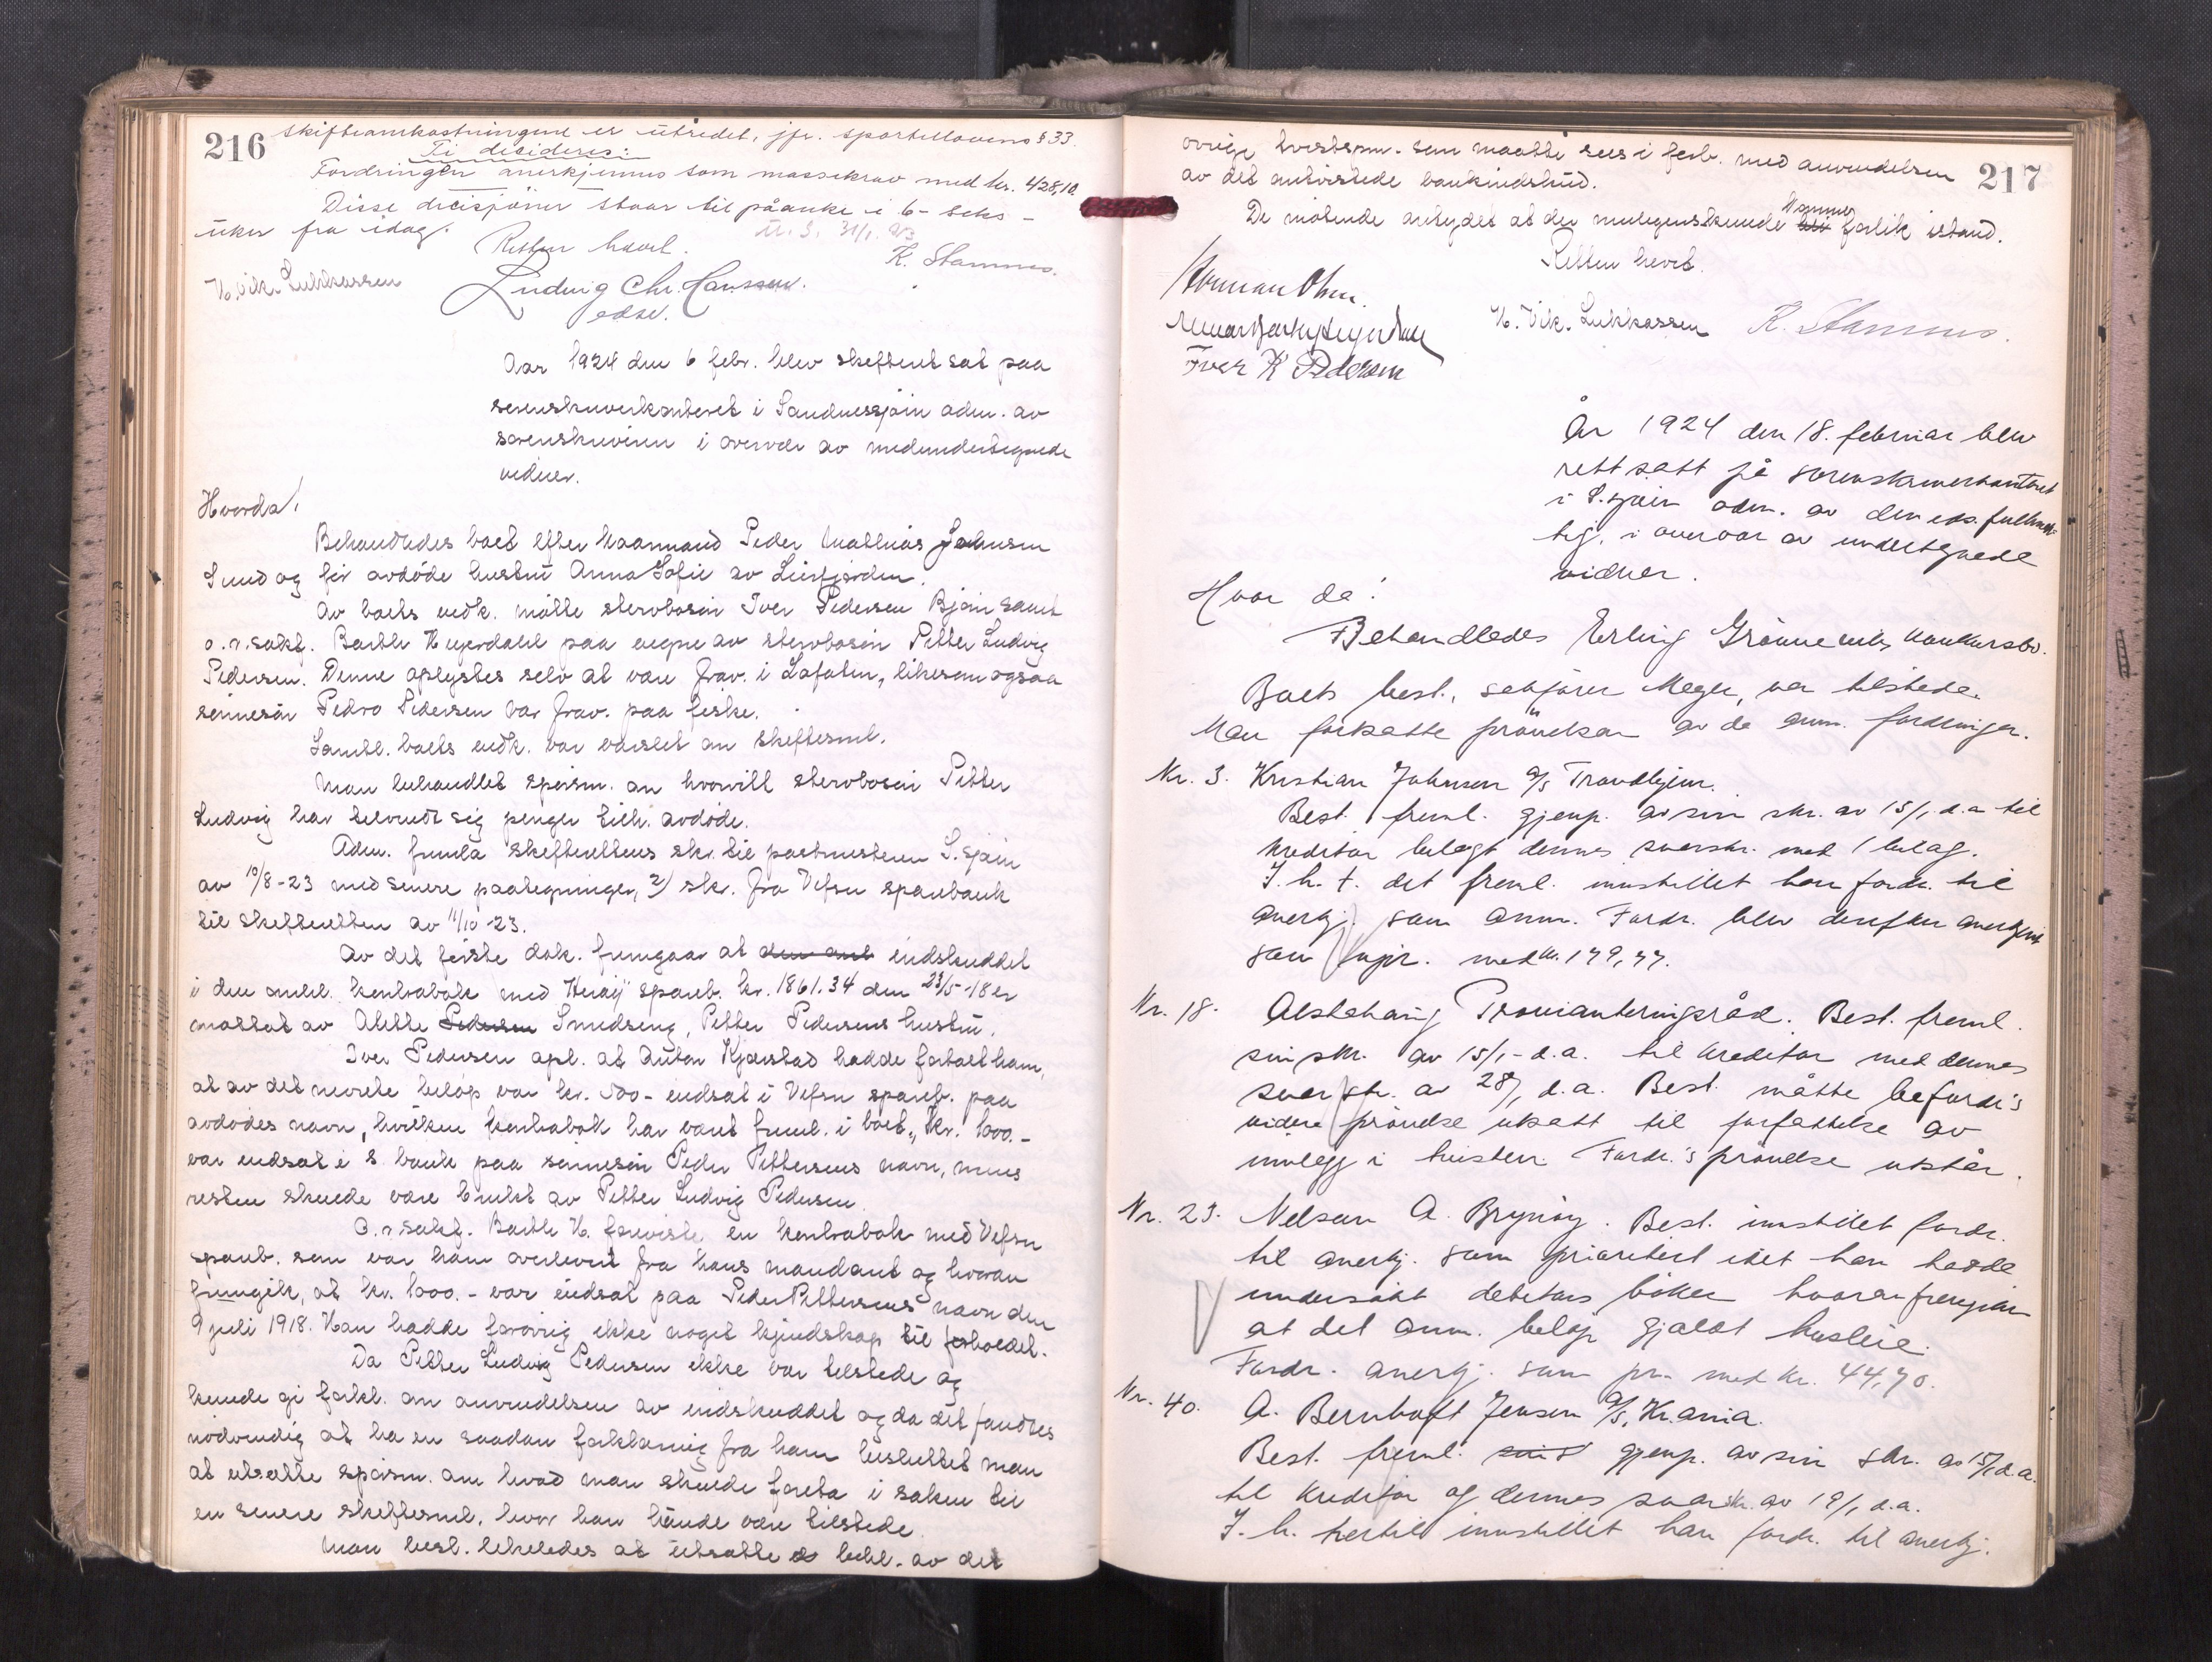 216
skifteomkostningene er utredet, jfr. sportellovens § 33.
Ti decideres:
Fordringen anerkjennes som massekrav med kr. 428,10.
Disse decisjoner staar til påanke i 6 - seks -
uker fra idag.
Retten hævet.
K. Stamnes.
H. Vik. Lukkassen
Ludvig Chr. Hanssen.
edsv.
Aar 1924 den 6 febr. blev skifteret sat paa
sorenskriverkontoret i Sandnessjøen adm. av
sorenskriveren i overvær av medundertegnede
vidner.
Hvorda!
Behandledes boet efter kaarmand Peder Mathias Johnsen
Sund og før avdøde hustru Anna Sofie av Leirfjorden.
Av boets vedk. møtte stervbosøn Iver Pedersen Bjøen samt
o.r.sakf. Barth Heyerdahl paa vegne av stervbosøn Petter Ludvig
Pedersen. Denne oplystes selv at være frav. i Lofoten, likesom ogsaa
sønnesøn Pedro Pedersen var frav. paa fiske.
Samtl. boets vedk. var varslet om skiftesml.
Man behandlet spørsm. om hvorvidt stervbosøn Petter
Ludvig har tilvendt sig penger tilh. avdøde.
Adm. fremla skifterettens skr. til postmesteren S.sjøen
av 10/8-23 med senere paategninger, 2) skr. fra Vefsn sparebank
til skifteretten av 11/10-23.
Av det første dok. fremgaar at den anl indskuddet
i den omhl. kontrabok med Herøy spareb. kr. 1861.34 den 23/5-18 er
mottat av Alette Pedersen Smedseng, Petter Pedersens hustru.
Iver Pedersen opl. at Anton Kjærstad hadde fortalt ham,
at av det nævnte beløp var kr. 500 - indsat i Vefsn spareb. paa
avdødes navn, hvilken kontrabok har været freml. i boet, kr. 1000.-
var indsat i s. bank paa sønnesøn Peder Pettersens navn, mens
resten skulde være brukt av Petter Ludvig Pedersen.
O.r.sakf. Barth H. foreviste en kontrabok med Vefsn
spareb. som var ham overlevert fra hans mandant og hvorav
fremgik, at kr. 1000.- var indsat paa Peder Pettersens navn den
9 juli 1918. Han hadde forøvrig ikke noget kjendskap til forholdet.
Da Petter Ludvig Pedersen ikke var tilstede og
kunde gi forkl. om anvendelsen av indskuddet og da det fandtes
nødvendig at ha en saadan forklaring fra ham besluttet man
at utsætte spørsm. om hvad man skulde foreta i saken til
en senere skiftesml. hvor han kunde være tilstede.
Man besl. likeledes at utsætte beh. av det
217
øvrige tvistspm. som maatte sees i forb. med anvendelsen
av det omtvistede bankindskud.
De møtende antydet at der muligens kunde kommes forlik istand.
Retten hevet.
Herman Ohm.
H. Vik. Lukkassen
K. Stamnes.
Iver K Pedersen
År 1924 den 18. februar blev
rett satt på sorenskriverkontoret
i S.sjøen adm. av den eds. fullmek-
tig, i overvær av undertegnede
vidner.
Hvor da!
Behandledes Erling Grønneviks konkursbo.
Boets best., sakfører Meyer, var tilstede.
Man forsatte prøvelsen av de anm. fordringer.
Nr. 3. Kristian Johnsen A/S Trondhjem.
Best. freml. gjenp. av sin skr. av 15/1. d.a til
kreditor belagt dennes svarskr. med 1 bilag.
I. h. t. det freml. innstillet han fordr. til
anerkj. som anm. Fordr. blev derefter anerkjent
som upr. med kr. 179,77.
Nr. 18. Alstahaug Provianteringsråd. Best. freml.
sin skr. av 15/1-d.a. til kreditor med dennes
svarskr. av 28/1 d.a. Best. måtte be fordr's
videre prøvelse utsatt til forfattelse av
innlegg i tvisten. Fordr.'s prøvelse utstår.
Nr. 23. Nelson A. Brynøy. Best. innstillet fordr.
til anerkj. som prioritert idet han hadde
undersøkt debitors bøker hvorav fremgikk
at det anm. beløp gjaldt husleie.
Fordr. anerkj. som pr. med kr. 44,70.
Nr. 40. A. Bernhoft Jensen A/S, Kr.ania.
Best. freml. sin gjenp. av sin skr. av 15/1 d.a.
til kreditor og dennes svarskr. av 19/1 d.a.
I. h. hertil innstillet han fordr. til anerkj.